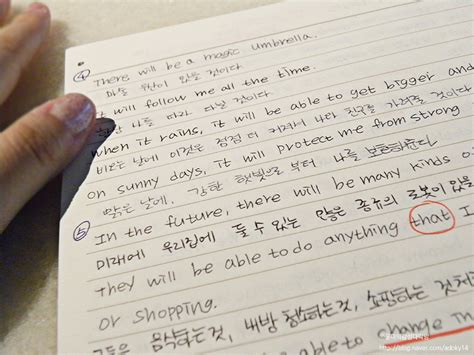 ④ There will be a magic umbrella.
마술 우산이 있을 것이다
It will follow me all the time.
항상 나를 따라 다닐 것이다
when it rains, it will be able to get bigger and
비오는 날에 이것은 점점 더 커져서 나와 친구를 가려줄 것이다
on sunny days, it will protect me from strong
맑은 날에, 강한 햇빛으로 부터 나를 보호해준다
⑤ In the future, there will be many kinds o
미래에 우리집에 둘 수 있는 많은 종류의 로봇이 있을
they will be able to do anything that I
or shopping.
들은 음식하는것, 내방 청소하는것, 쇼핑하는 것처
able to change th
http://blog.naver.com/adoky14